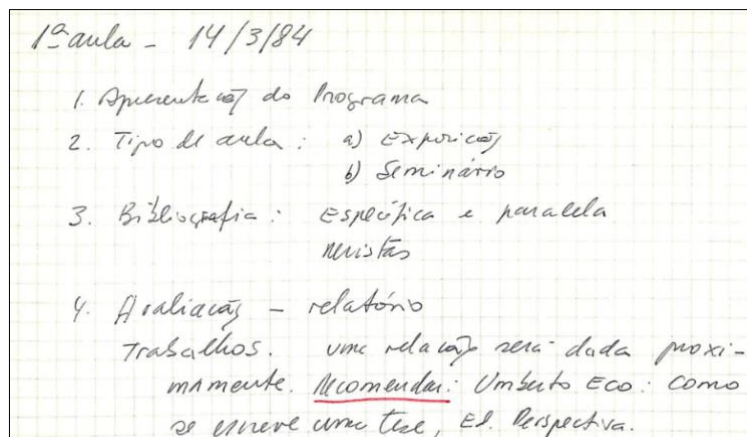 1ª aula - 14/3/84
1. Apresentação do Programa
2. Tipo de aula: a) Exposição
b) Seminário
3. Bibliografia: Específica e paralela
revistas
4. Avaliação - relatório
Trabalhos. uma relação será dada proxi-
mamente. Recomendar: Umberto Eco: Como
se escreve uma tese, Ed. Perspectiva.